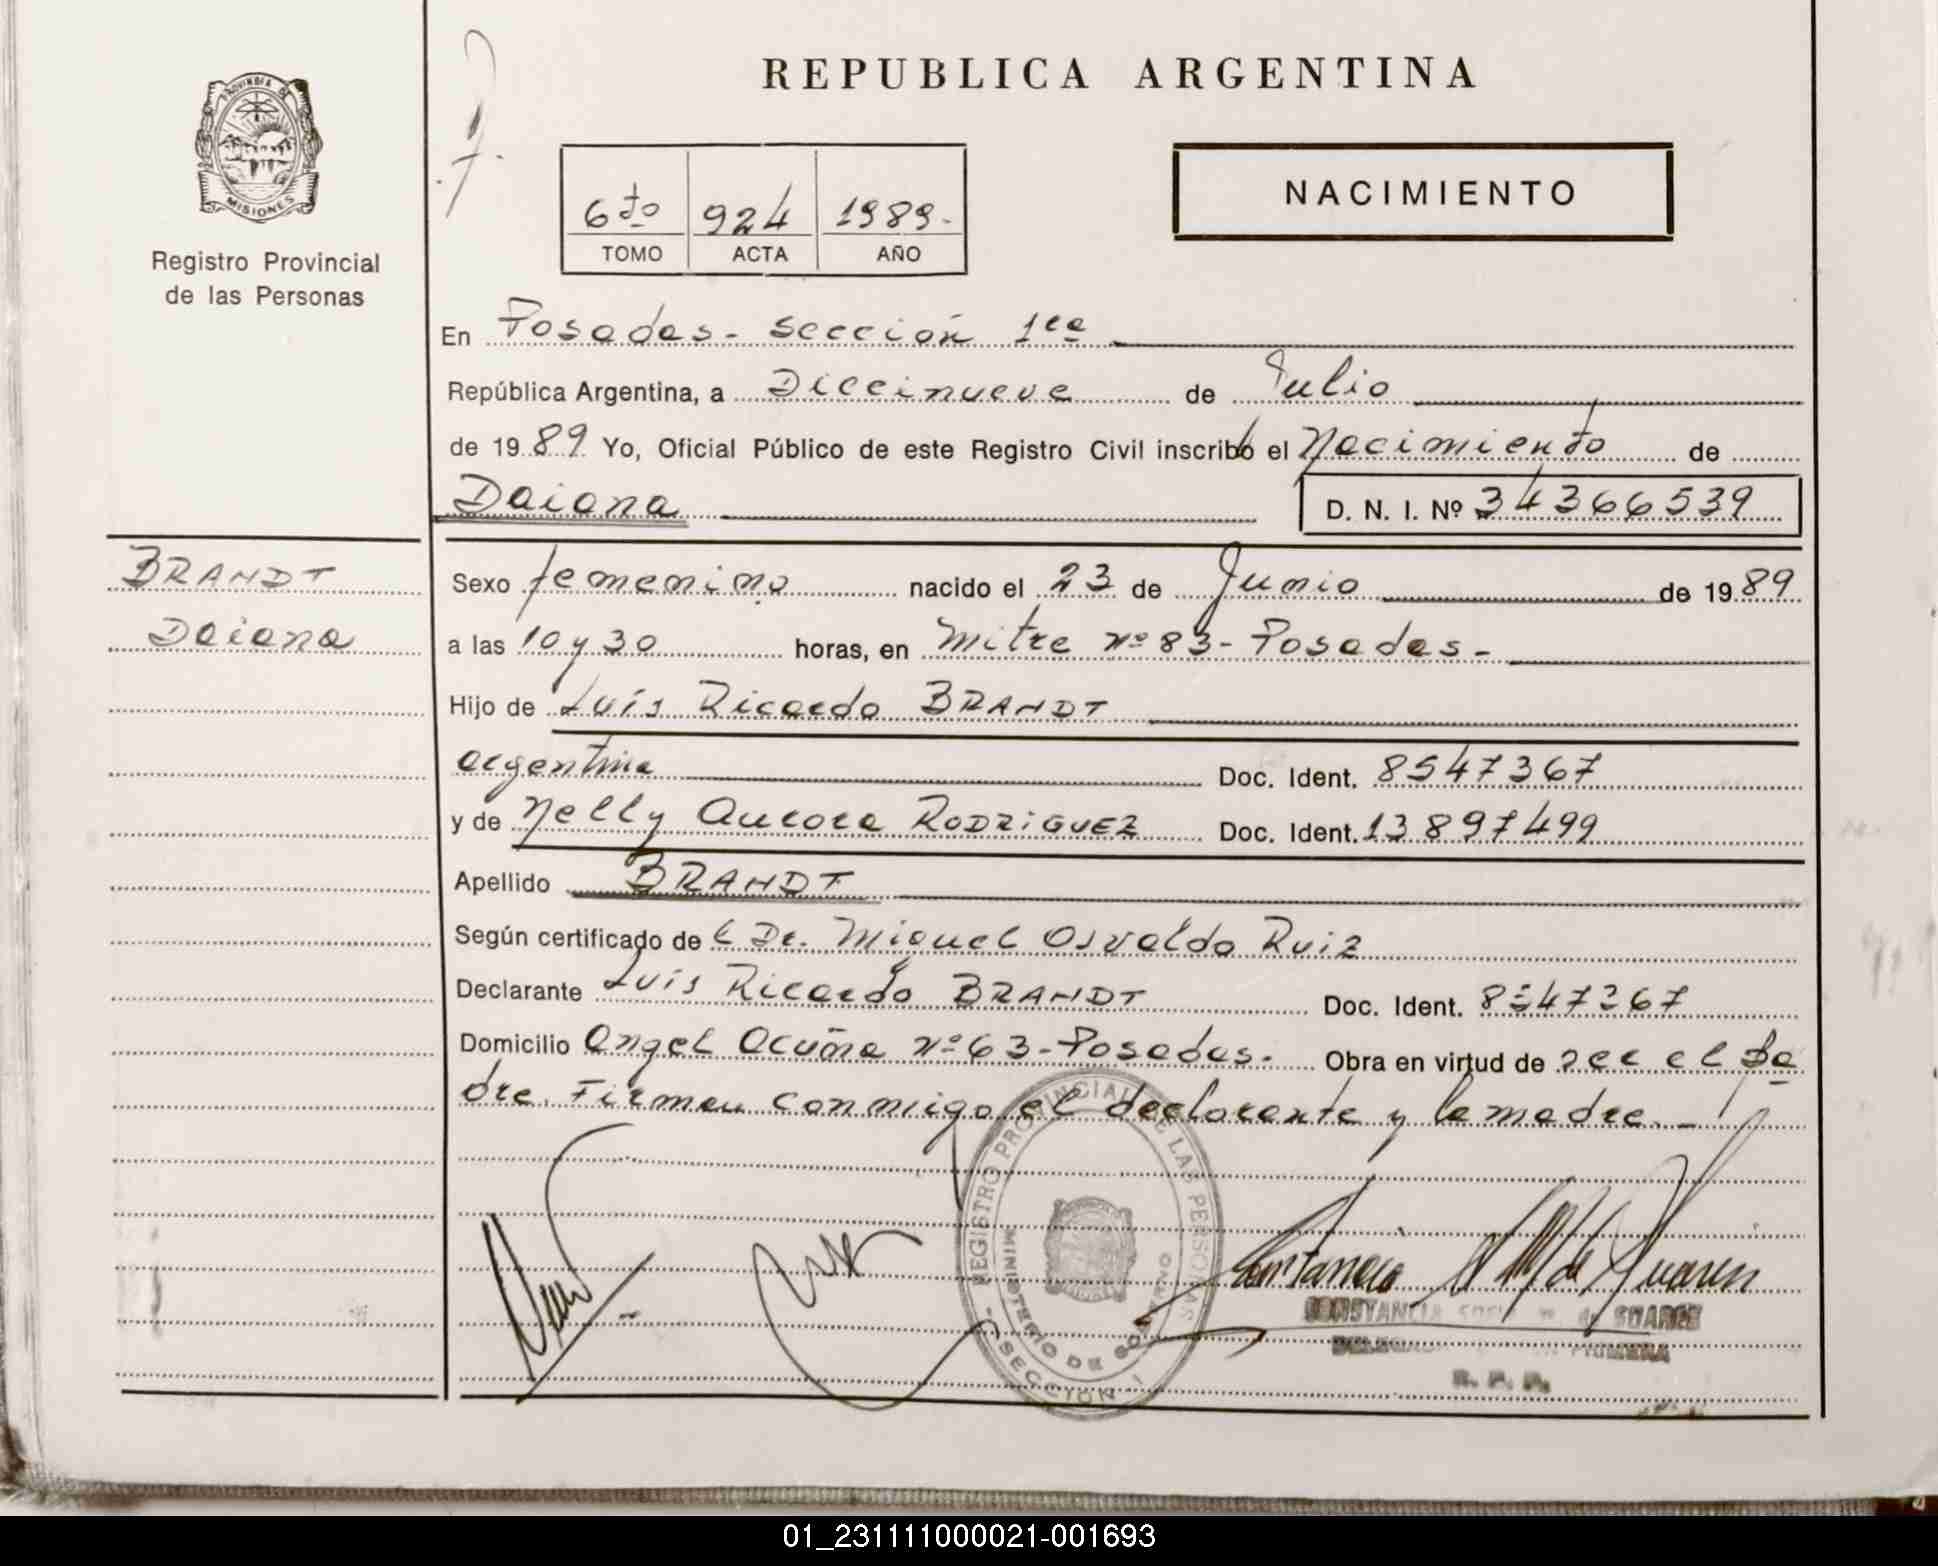 REPUBLICA ARGENTINA
PROVINCIA DE
MISIONES
Registro Provincial
de las Personas
NACIMIENTO
6to 924 1989-
TOMO ACTA AÑO
En Posadas - Sección 1ra
República Argentina, a Diecinueve de Julio
de 19 89 Yo, Oficial Público de este Registro Civil inscribo el Nacimiento de
Daiana D. N. I. Nº 34366539
BRANDT
Daiana
Sexo femenino nacido el 23 de Junio de 19 89
a las 10 y 30 horas, en Mitre nº 83 - Posadas -
Hijo de Luis Ricardo BRANDT
argentina Doc. Ident. 8547367
y de Nelly Aurora RODRIGUEZ Doc. Ident. 13897499
Apellido BRANDT
Según certificado de l Dr. Miguel Osvaldo Ruiz
Declarante Luis Ricardo BRANDT Doc. Ident. 8547367
Domicilio Angel Acuña nº 63 - Posadas. Obra en virtud de ser el pa
dre. Firman conmigo el declarante y la madre. -
REGISTRO PROVINCIAL DE LAS PERSONAS
MINISTERIO DE GOBIERNO
- SECCION 1 -
CONSTANCIA de SUAREZ
PRIMERA
R. P. P.
01_231111000021-001693